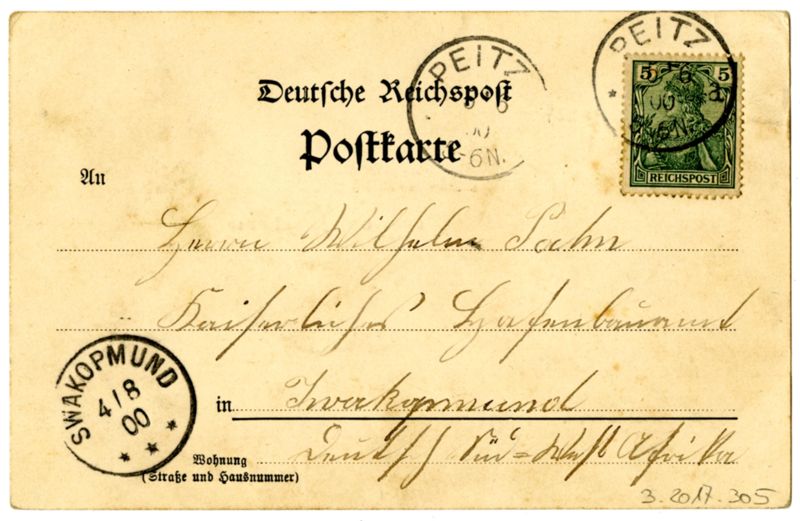 PEITZ
6
00
6N.
PEITZ
5 6
00
6N.
a
5 5
REICHSPOST
Deutsche Reichspost
Postkarte
An
Herrn Wilhelm
Kaiserliches Hafenbauamt
in Swakopmund
Wohnung
(Straße und Hausnummer)
Deutsch Süd-West Afrika
SWAKOPMUND
4/8
00
3.2017.305